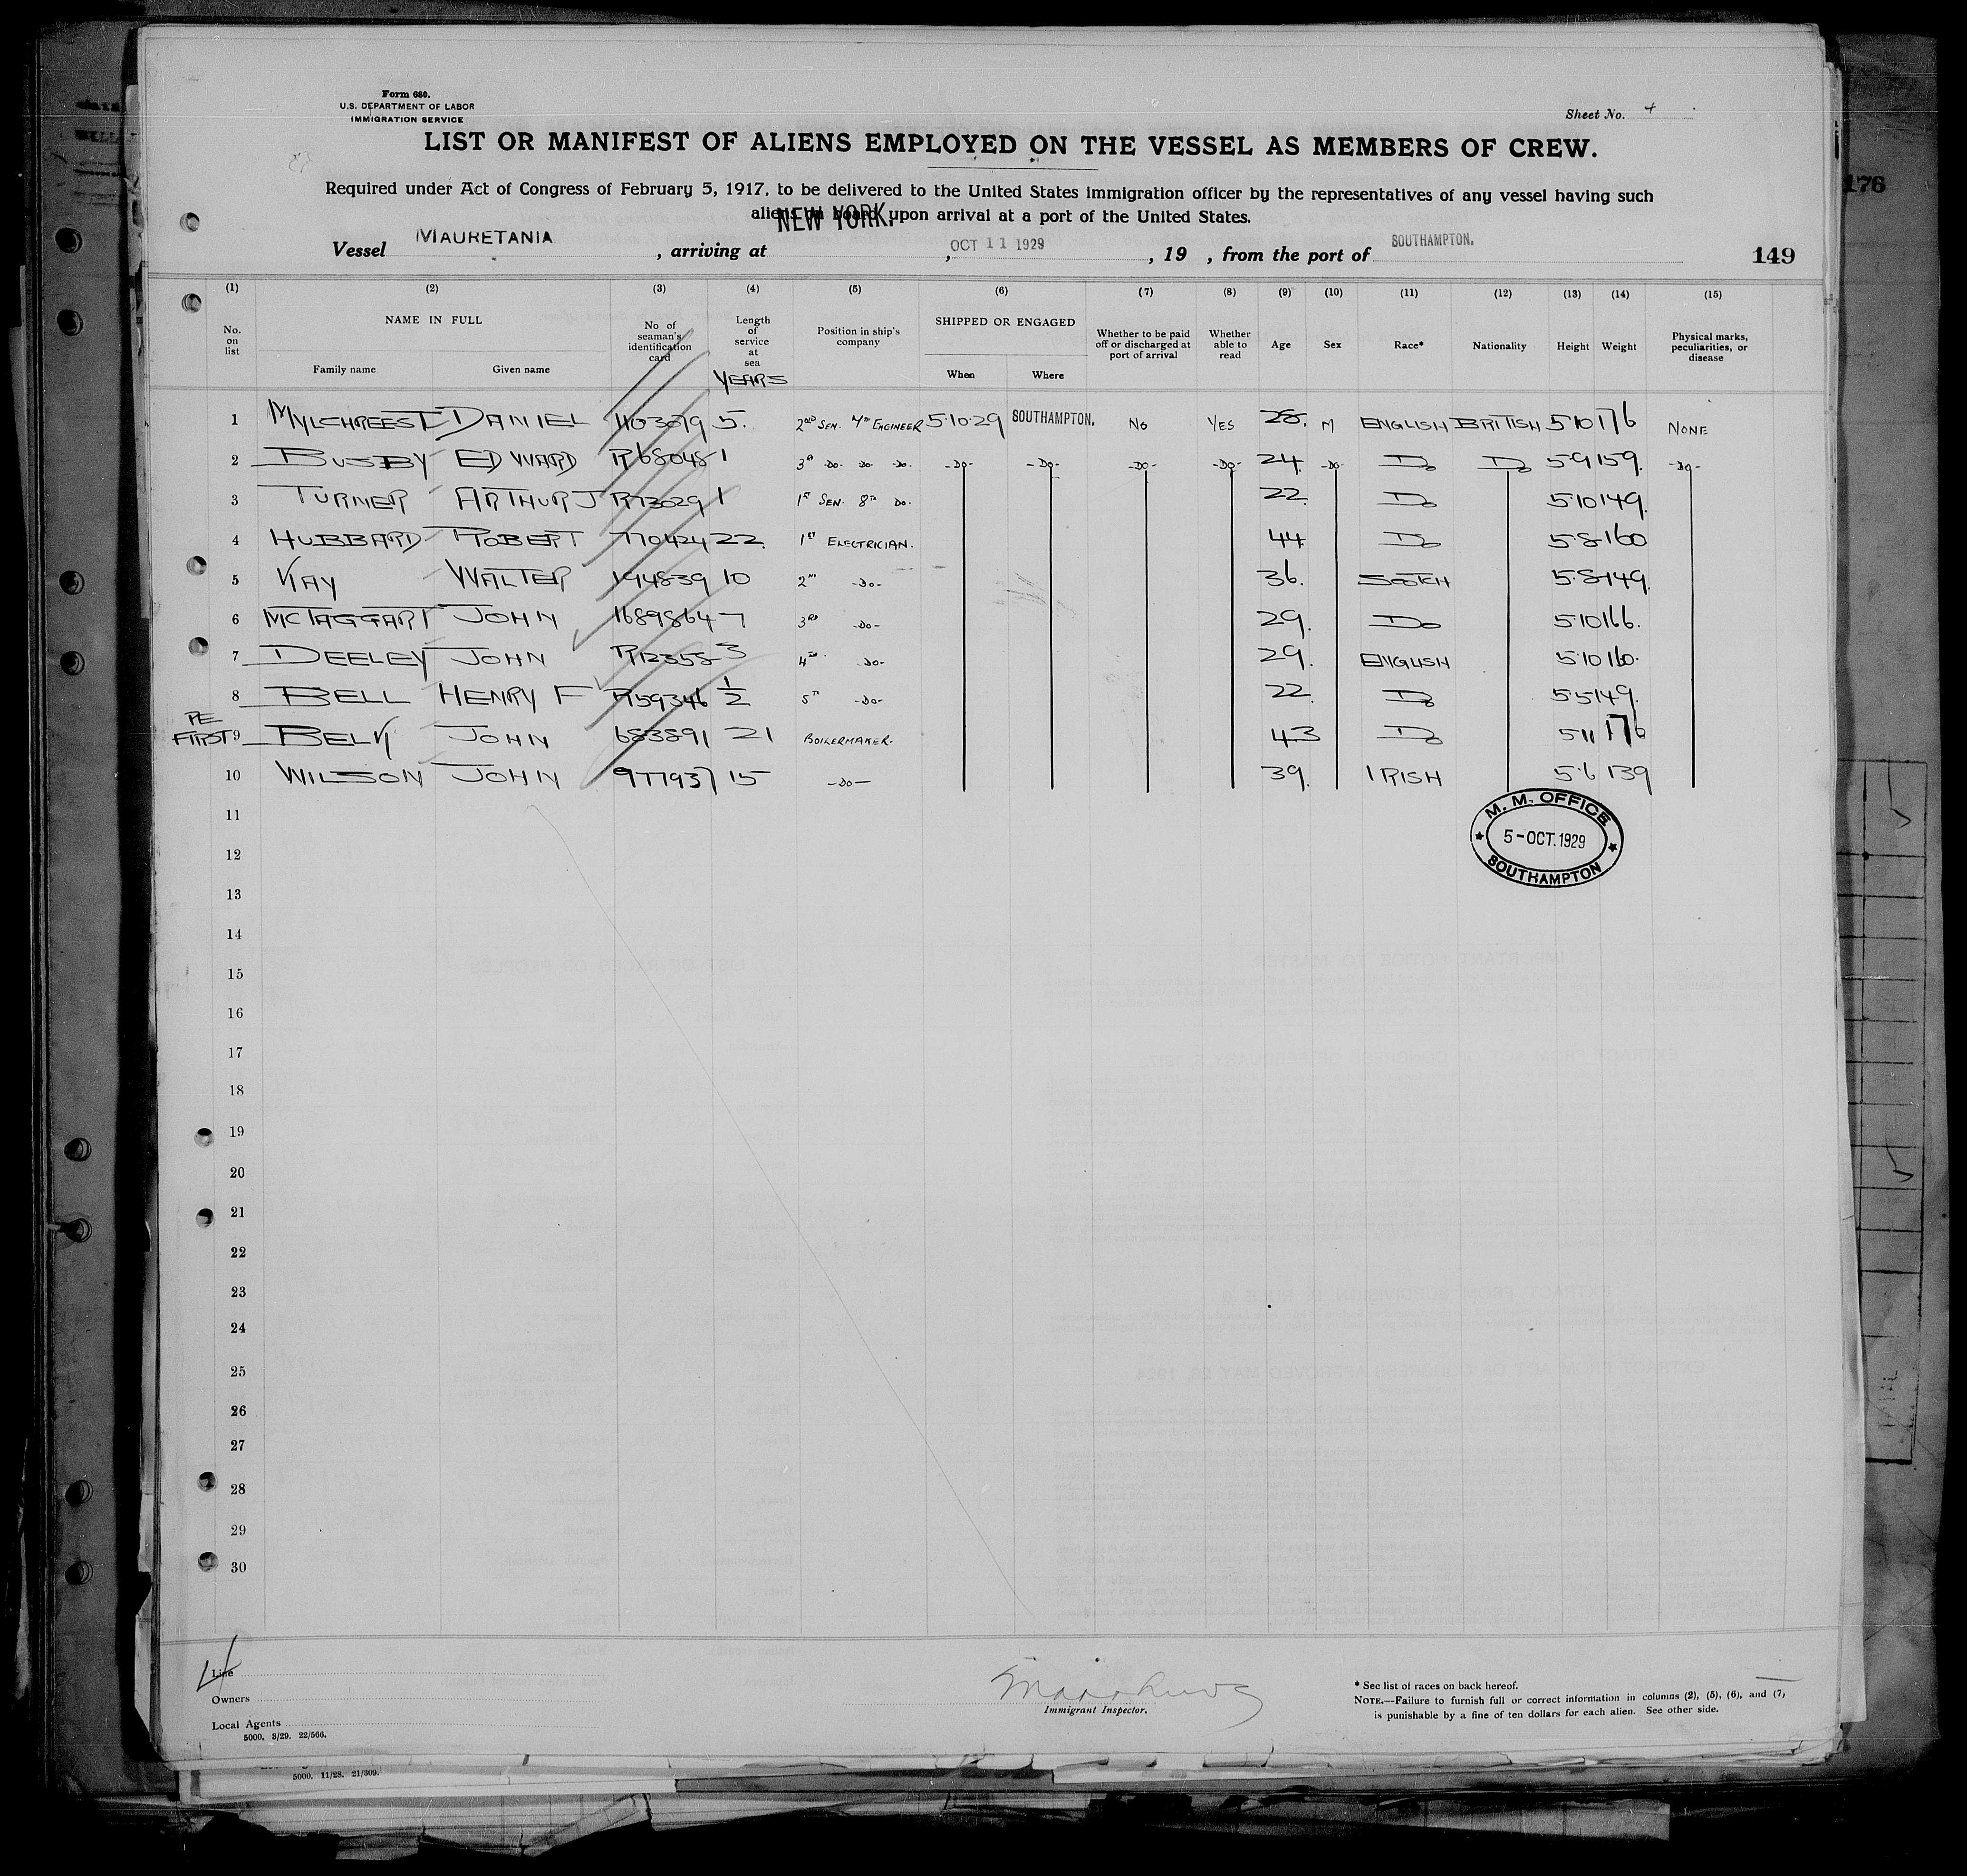 Form 680.
U.S. DEPARTMENT OF LABOR
IMMIGRATION SERVICE
Sheet No. 4
LIST OR MANIFEST OF ALIENS EMPLOYED ON THE VESSEL AS MEMBERS OF CREW.
Required under Act of Congress of February 5, 1917, to be delivered to the United States immigration officer by the representatives of any vessel having such
aliens on board upon arrival at a port of the United States.
Vessel MAURETANIA, arriving at NEW YORK, OCT 11 1929, 19 , from the port of SOUTHAMPTON. 149
176
(1) (2) (3) (4) (5) (6) (7) (8) (9) (10) (11) (12) (13) (14) (15)
No. on list NAME IN FULL Family name Given name No of seaman's identification card Length of service at sea YEARS Position in ship's company SHIPPED OR ENGAGED When Where Whether to be paid off or discharged at port of arrival Whether able to read Age Sex Race* Nationality Height Weight Physical marks, peculiarities, or disease
1 MYLCHREEST DANIEL 1103079 5. 2ND SEN. 7TH ENGINEER 5·10·29 SOUTHAMPTON. NO YES 28. M ENGLISH BRITISH 5·10 176 NONE
2 BUSBY EDWARD R68048 1 3RD -DO- DO- DO- -DO- -DO- -DO- -DO- 24. -DO- DO DO 5·9 159. -DO-
3 TURNER ARTHUR J R73029 1 1ST SEN. 8TH DO. 22. DO 5·10 149.
4 HUBBARD ROBERT 770424 22. 1ST ELECTRICIAN. 44 DO 5·8 160
5 KAY WALTER 194839 10 2ND -DO- 36. SCOTCH 5·8 149.
6 MCTAGGART JOHN 1689864 7 3RD -DO- 29. DO 5·10 166.
7 DEELEY JOHN R12358 3 4TH DO- 29. ENGLISH 5·10 160.
8 BELL HENRY F R59346 1/2 5TH -DO- 22. DO 5·5 149.
PE FIRST 9 BELK JOHN 683891 21 BOILERMAKER. 43 DO 5·11 176
10 WILSON JOHN 977937 15 -DO- 39. IRISH 5·6 139
11
M. M. OFFICE
5-OCT.1929
SOUTHAMPTON
12
13
14
15
16
17
18
19
20
21
22
23
24
25
26
27
28
29
30
4
Line
Owners
Local Agents
5000. 3/29. 22/566.
Immigrant Inspector.
* See list of races on back hereof.
NOTE.—Failure to furnish full or correct information in columns (2), (5), (6), and (7)
is punishable by a fine of ten dollars for each alien. See other side.
5000. 11/28. 21/309.